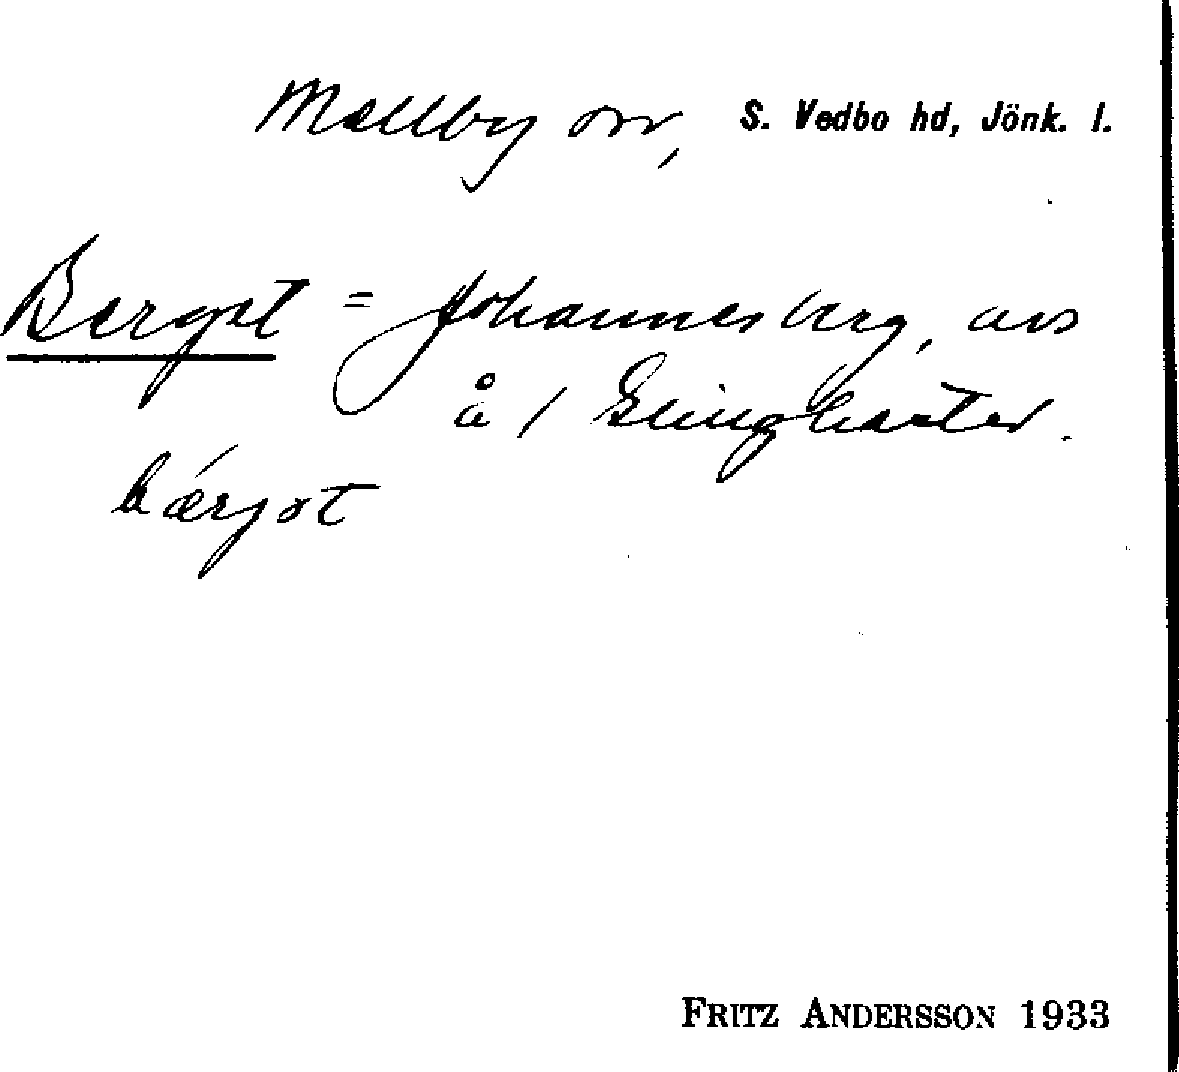 Mellby sn, S. Vedbo hd, Jönk. l.
Berget = Johannesberg, avs
å 1
bærjət
FRITZ ANDERSSON 1933